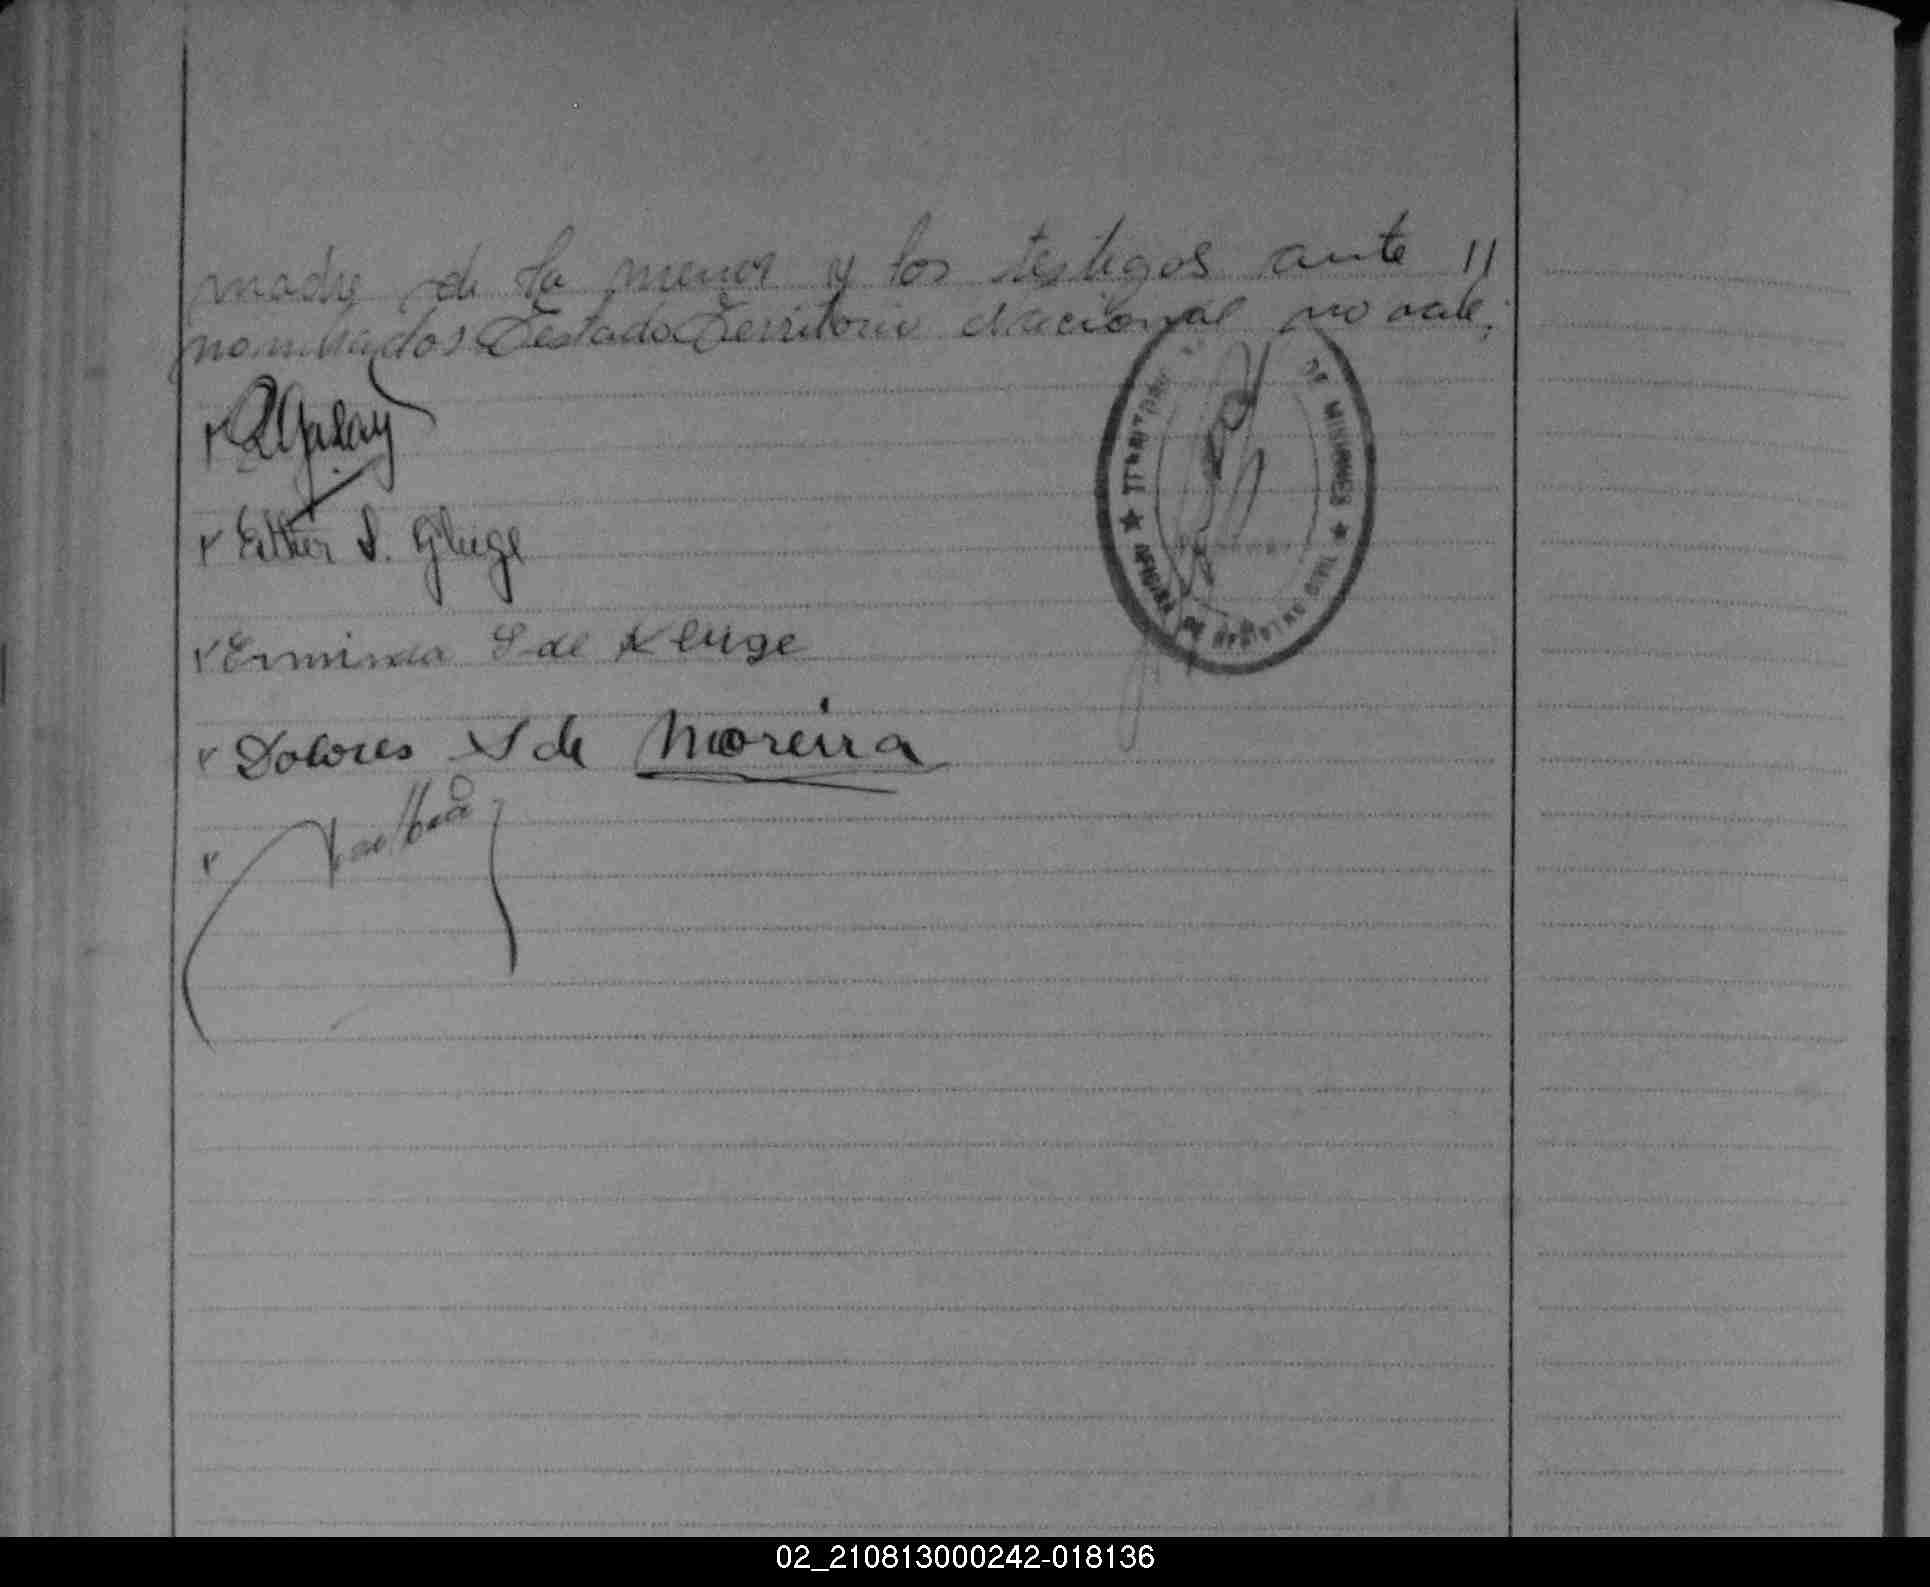 madre de la menor y los testigos ante //
nombrados Testado Territorio Nacional no vale.
Esther S. Gluge
Erminia S de Kluge
Dolores S de Moreira
TERRITORIO DE MISIONES ★ OFICINA DE REGISTRO CIVIL ★
02_210813000242-018136